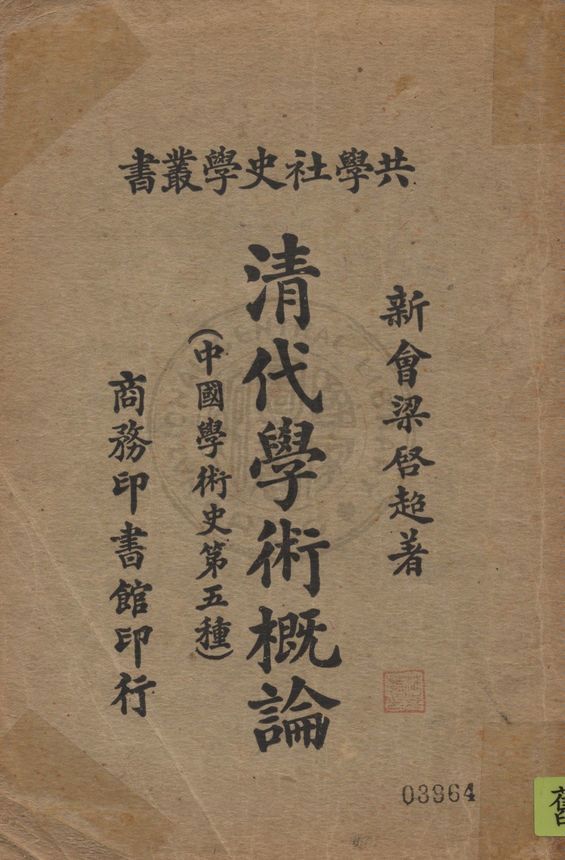 共學社史學叢書
新會梁啓超著
清代學術概論
（中國學術史第五種）
商務印書館印行
03964
舊